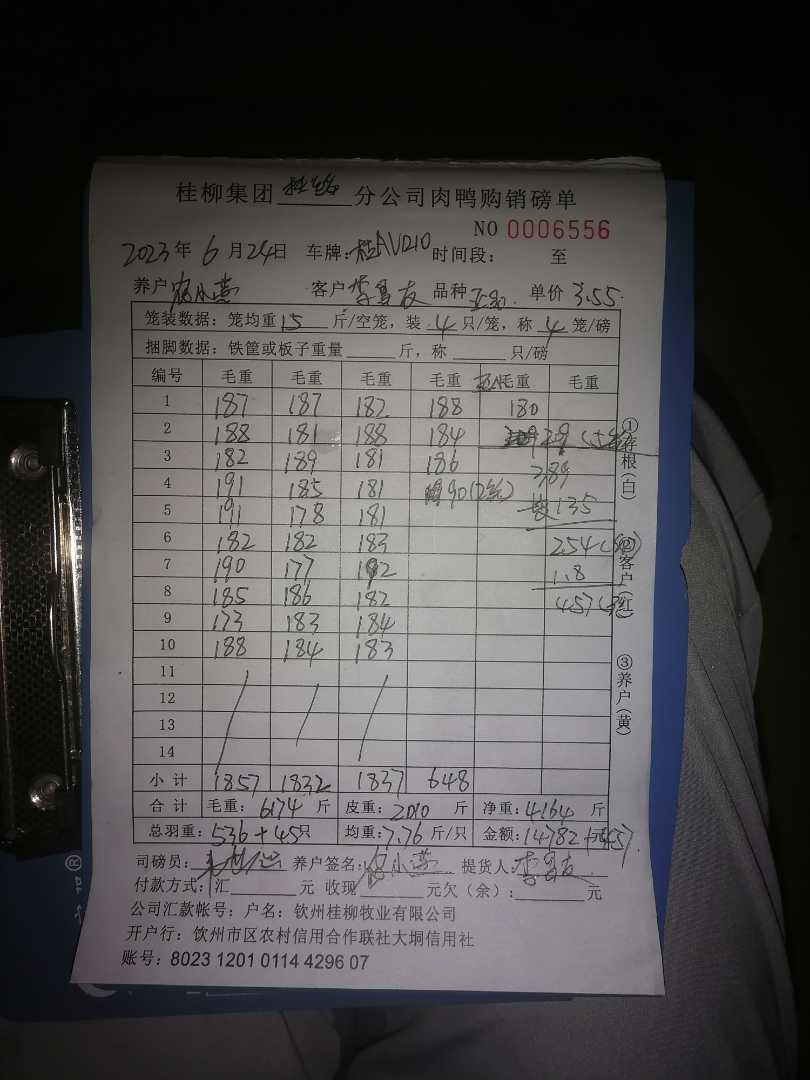 桂柳集团 分公司肉鸭购销磅单
NO 0006556
2023年 6月24日 车牌:桂AVD10 时间段: 至
养户 小燕 客户 李 友 品种 单价 3.55
笼装数据:笼均重 15 斤/空笼,装 4 只/笼,称 4 笼/磅
捆脚数据:铁筐或板子重量 斤,称 只/磅
编号 毛重 毛重 毛重 毛重 毛重 毛重
1 187 187 182 188 180
2 188 181 188 184
3 182 189 181 186 389
4 191 185 181 90
5 191 178 181 135
6 182 182 183 254
7 190 177 192 1.8
8 185 186 182 457
9 173 183 184
10 188 184 183
11
12
13
14
小计 1857 1832 1837 648
合计 毛重: 6174 斤 皮重: 2010 斤 净重: 4164 斤
总羽重: 536+45只 均重: 7.76 斤/只 金额: 14782+457元
司磅员: 养户签名: 小燕 提货人: 李 友
付款方式: 汇 元 收现 元欠(余): 元
公司汇款帐号:户名:钦州桂柳牧业有限公司
开户行:钦州市区农村信用合作联社大垌信用社
账号:8023 1201 0114 4296 07
①存根(白)
②客户(红)
③养户(黄)